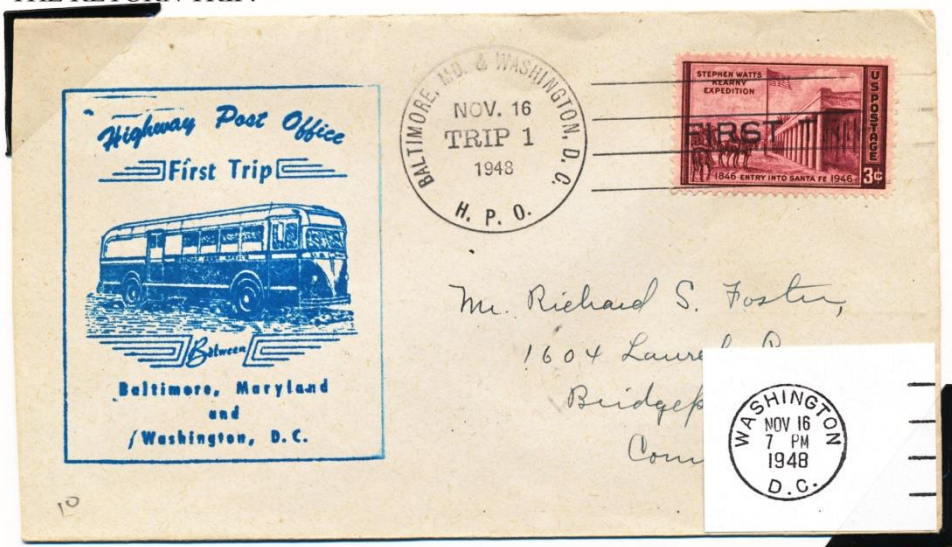 THE RETURN TRIP.
Highway Post Office
First Trip
Between
Baltimore, Maryland
and
Washington, D.C.
BALTIMORE, MD. & WASHINGTON, D. C.
NOV. 16
TRIP 1
1948
H. P. O.
STEPHEN WATTS
KEARNY
EXPEDITION
US POSTAGE
FIRST
1846 ENTRY INTO SANTA FE 1946
3¢
Mr. Richard S. Foster,
1604
WASHINGTON
NOV 16
7 PM
1948
D.C.
10